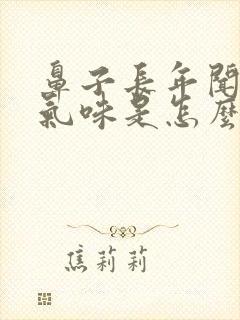 鼻子長年聞
氣味是怎麼
焦莉莉